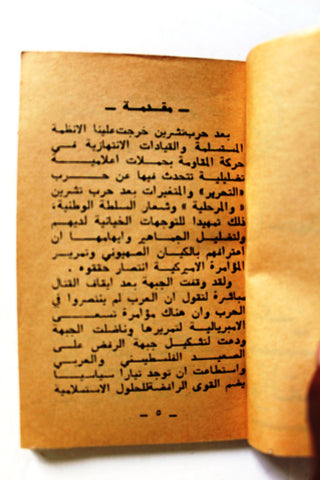 — مقدمة —
بعد حرب تشرين خرجت علينا الانظمة
المستسلمة والقيادات الانتهازية في
حركة المقاومة بحملات اعلامية
تضليلية تتحدث فيها عن حرب
« التحرير » والمتغيرات بعد حرب تشرين
« والمرحلية » وشعار السلطة الوطنية،
ذلك تمهيدا للتوجهات الخيانية لديهم
ولتضليل الجماهير وايهامها ان
اعترافهم بالكيان الصهيوني وتمرير
المؤامرة الاميركية انتصار حققوه .
ولقد وقفت الجبهة بعد ايقاف القتال
مباشرة لتقول ان العرب لم ينتصروا في
الحرب وان هناك مؤامرة تسعى
الامبريالية لتمريرها وناضلت الجبهة
ودعت لتشكيل جبهة الرفض على
الصعيد الفلسطيني والعربي
واستطاعت ان توجد تيارا سياسيا
يضم القوى الرافضة للحلول الاستسلامية
— ٥ —